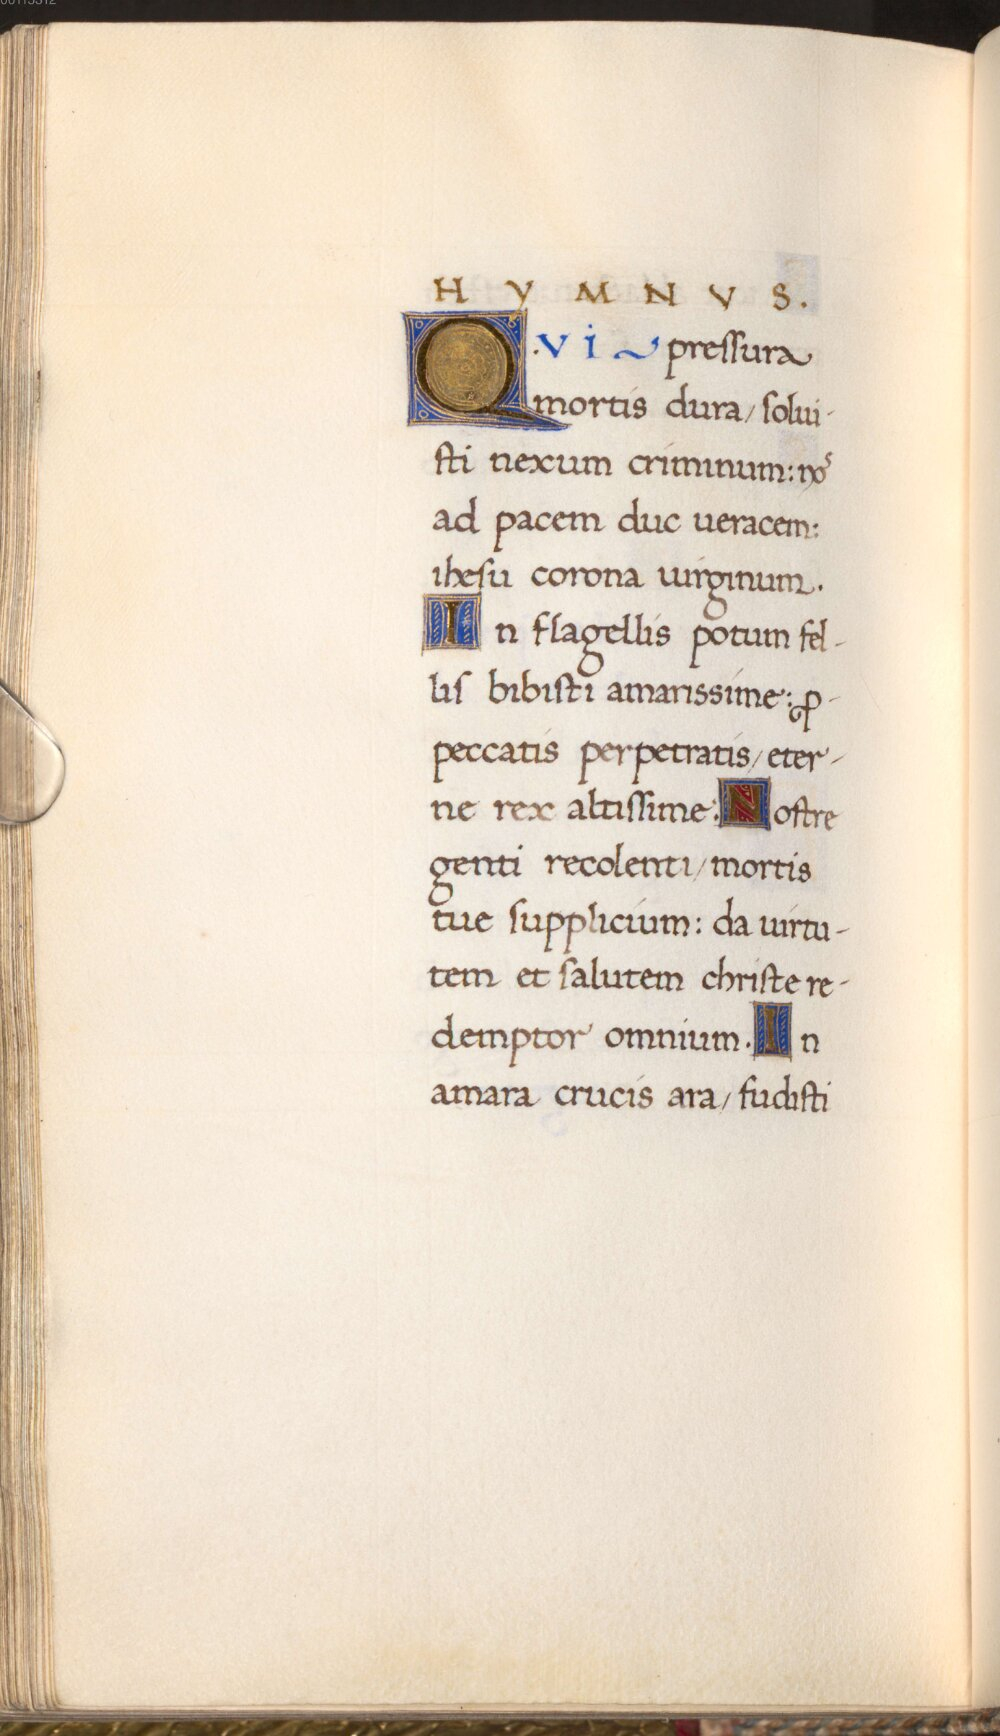 00115312
HYMNVS.
QVI pressura
mortis dura/ solui-
sti nexum criminum: nos
ad pacem duc ueracem:
ihesu corona uirginum.
In flagellis potum fel-
lis bibisti amarissime: ꝓ-
peccatis perpetratis/ eter-
ne rex altissime: Nostre
genti recolenti/ mortis
tue supplicium: da uirtu-
tem et salutem christe re-
demptor omnium. In
amara crucis ara/ fudisti